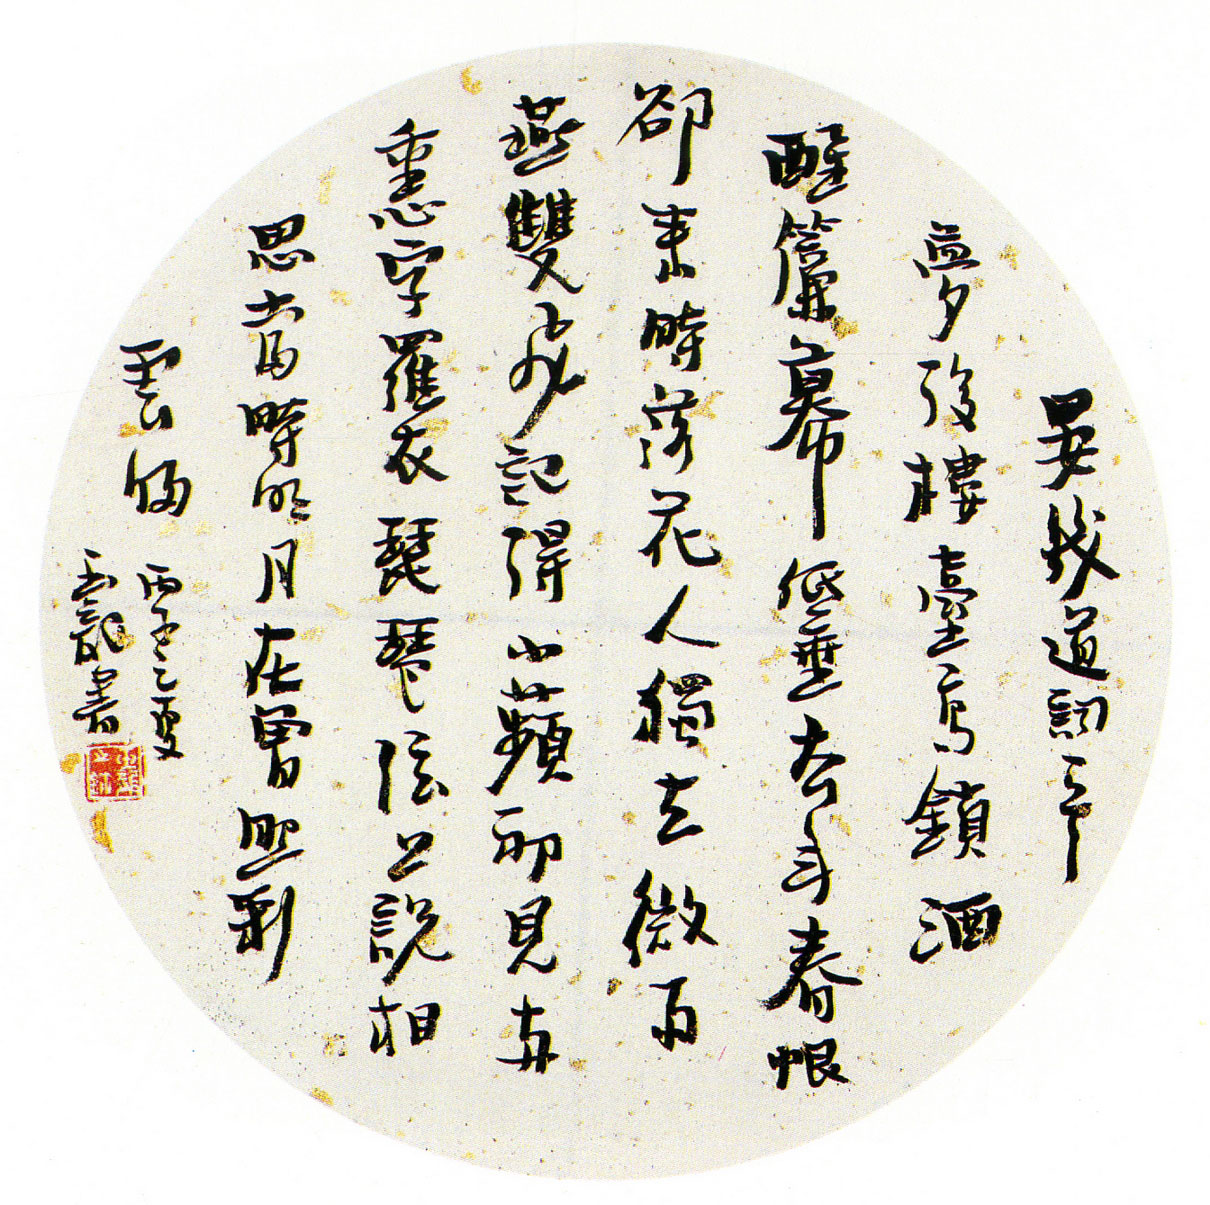 晏幾道詞
夢後樓臺高鎖酒
醒簾幕低垂去年春恨
卻來時落花人獨立微雨
燕雙飛記得小蘋初見兩
重心字羅衣琵琶弦上說相
思當時明月在曾照彩
雲歸 丙子之夏
玉龍書